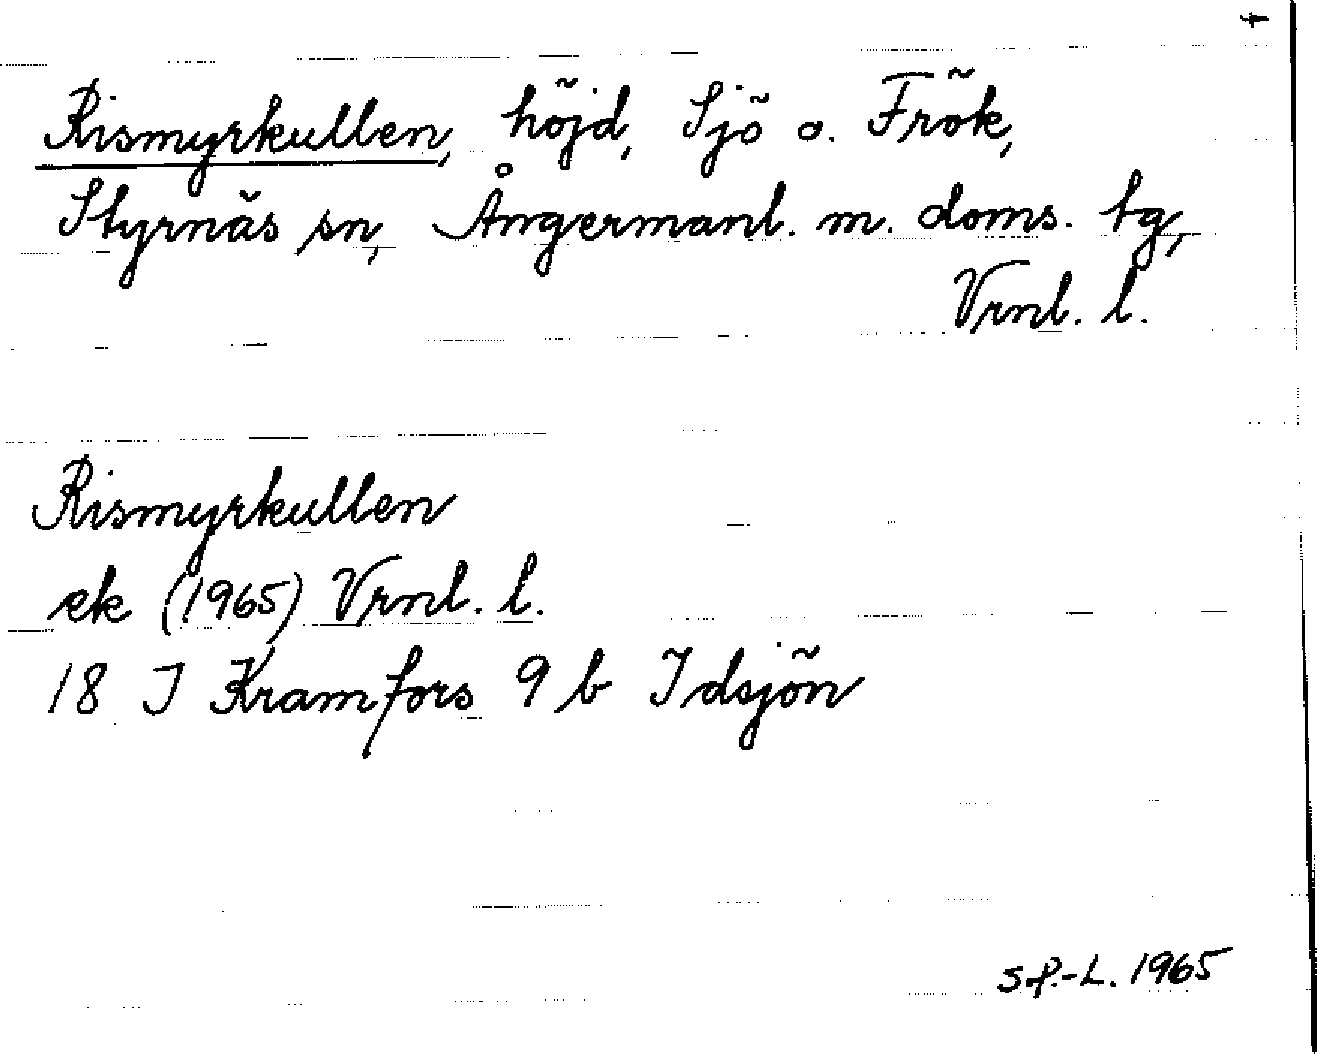 Rismyrkullen, höjd, Sjö o. Frök,
Styrnäs sn, Ångermanl. m. doms. tg,
Vrnl. l.
Rismyrkullen
ek (1965) Vrnl. l.
18 I Kramfors 9 b Idsjön
S.P.-L. 1965